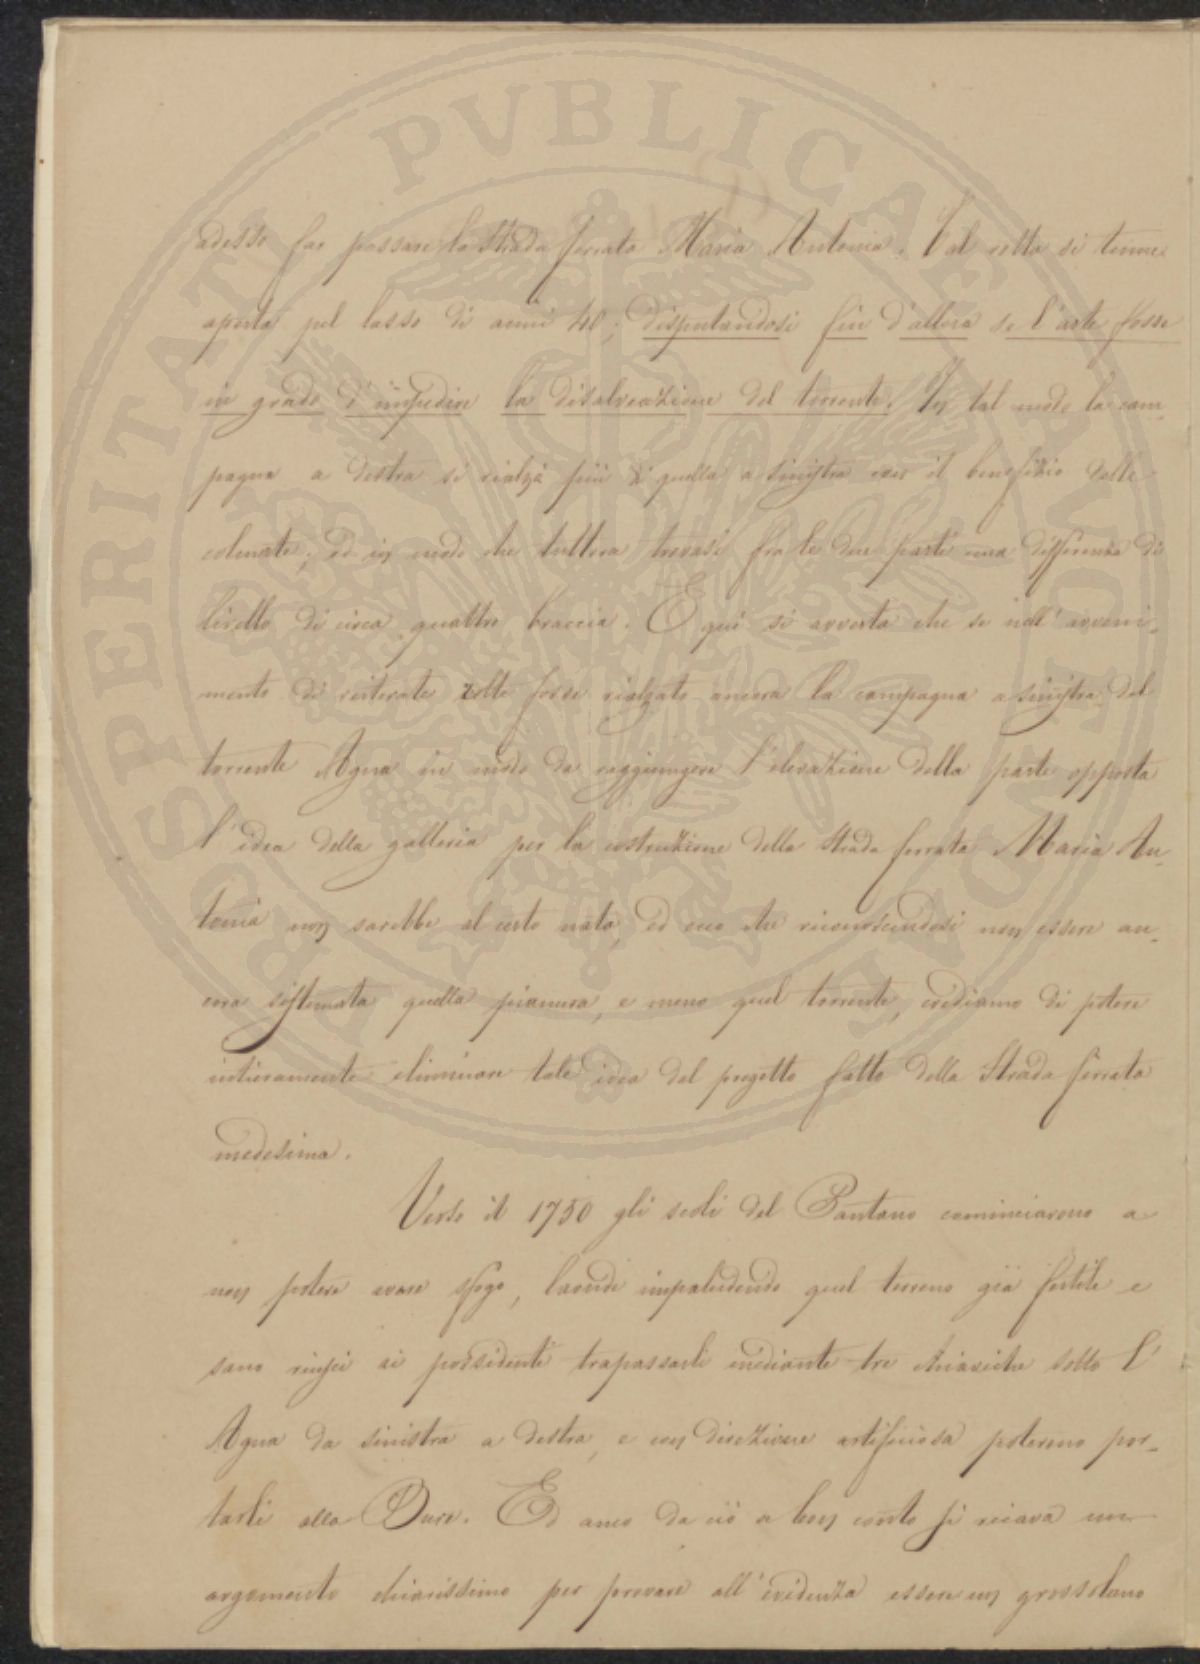 adesso far passare la Strada ferrata Maria Antonia. Tal rotta si tenne
aperta pel lasso di anni 40; disputandosi fin d'allora se l'arte fosse
in grado d'impedire la disalveazione del torrente. In tal modo la cam-
pagna a destra si rialzò più di quella a sinistra con il benefizio delle
colmate; ed in modo che tuttora trovasi fra le due parti una differenza di
livello di circa quattro braccia. E qui si avverta che se nell'avveni-
mento di reiterate rotte fosse rialzata ancora la campagna a sinistra del
torrente Agna in modo da raggiungere l'elevazione della parte opposta
l'idea della galleria per la costruzione della Strada ferrata Maria An-
tonia non sarebbe al certo nata, ed ecco che riconoscendosi non essere an-
cora sistemata quella pianura, e meno quel torrente, crediamo di potere
intieramente eliminare tale idea dal progetto fatto della Strada ferrata
medesima.
Verso il 1750 gli scoli del Pantano cominciarono a
non potere avere sfogo, laonde impaludendo quel terreno già fertile e
sano riuscì ai possidenti trapassarli mediante tre chiaviche sotto l'
Agna da sinistra a destra, e con direzione artificiosa poterono por-
tarli alla Bure. Ed anco da ciò a buon conto si ricava un
argomento chiarissimo per provare all'evidenza essere un grossolano
PROSPERITATI PVBLICAE